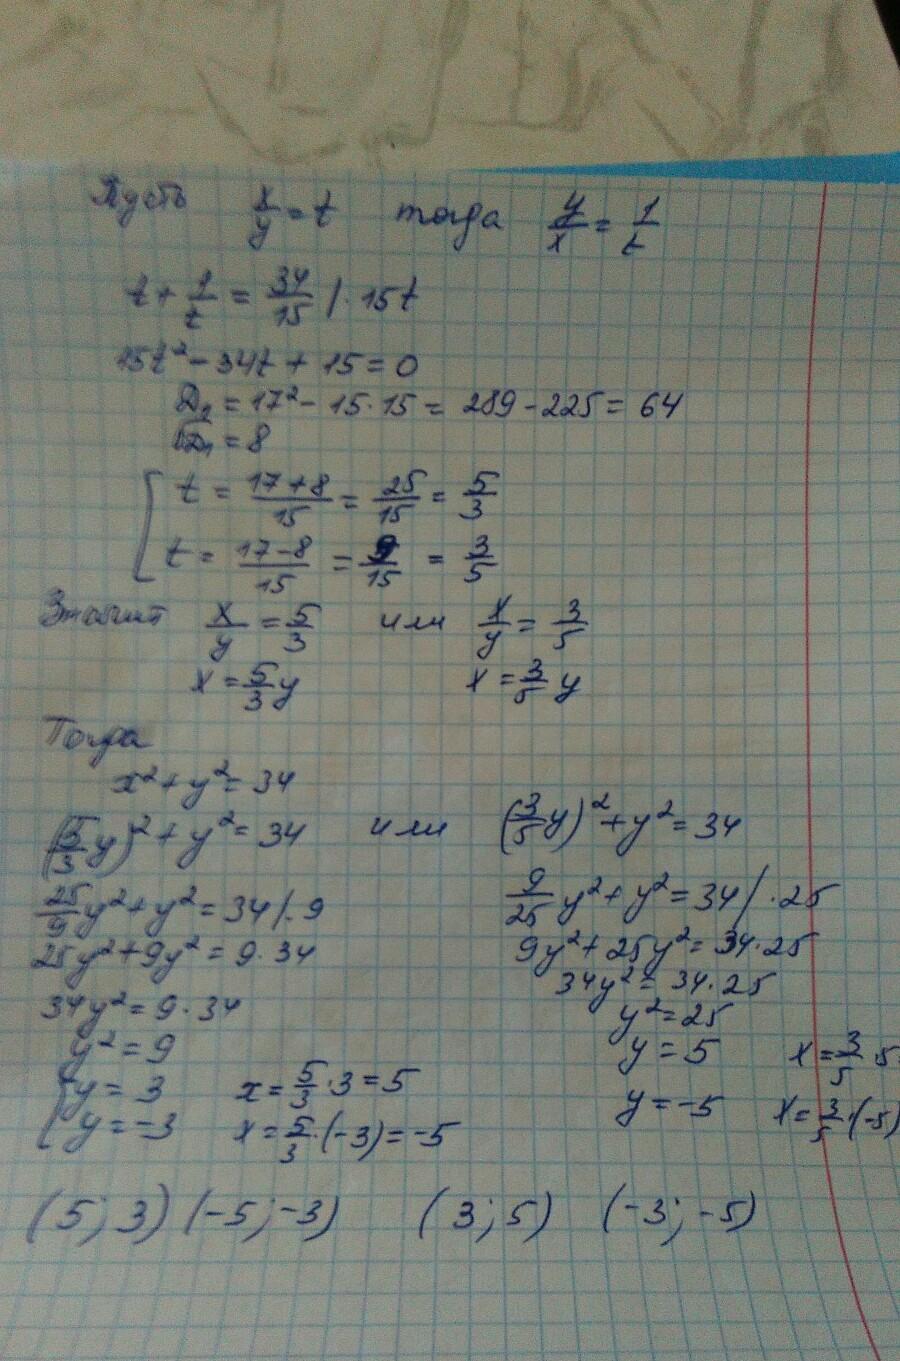 Пусть x/y = t тогда y/x = 1/t
t + 1/t = 34/15 / · 15t
15t² - 34t + 15 = 0
D₁ = 17² - 15·15 = 289 - 225 = 64
√D₁ = 8
[ t = (17+8)/15 = 25/15 = 5/3
t = (17-8)/15 = 9/15 = 3/5
Значит x/y = 5/3 или x/y = 3/5
x = 5/3 y x = 3/5 y
Тогда
x² + y² = 34
(5/3 y)² + y² = 34 или (3/5 y)² + y² = 34
25/9 y² + y² = 34 /· 9 9/25 y² + y² = 34 / · 25
25y² + 9y² = 9 · 34 9y² + 25y² = 34·25
34y² = 9 · 34 34y² = 34·25
y² = 9 y² = 25
[ y = 3 x = 5/3 · 3 = 5 y = 5 x = 3/5 · 5
y = -3 x = 5/3 · (-3) = -5 y = -5 x = 3/5 · (-5)
(5; 3) (-5; -3) (3; 5) (-3; -5)